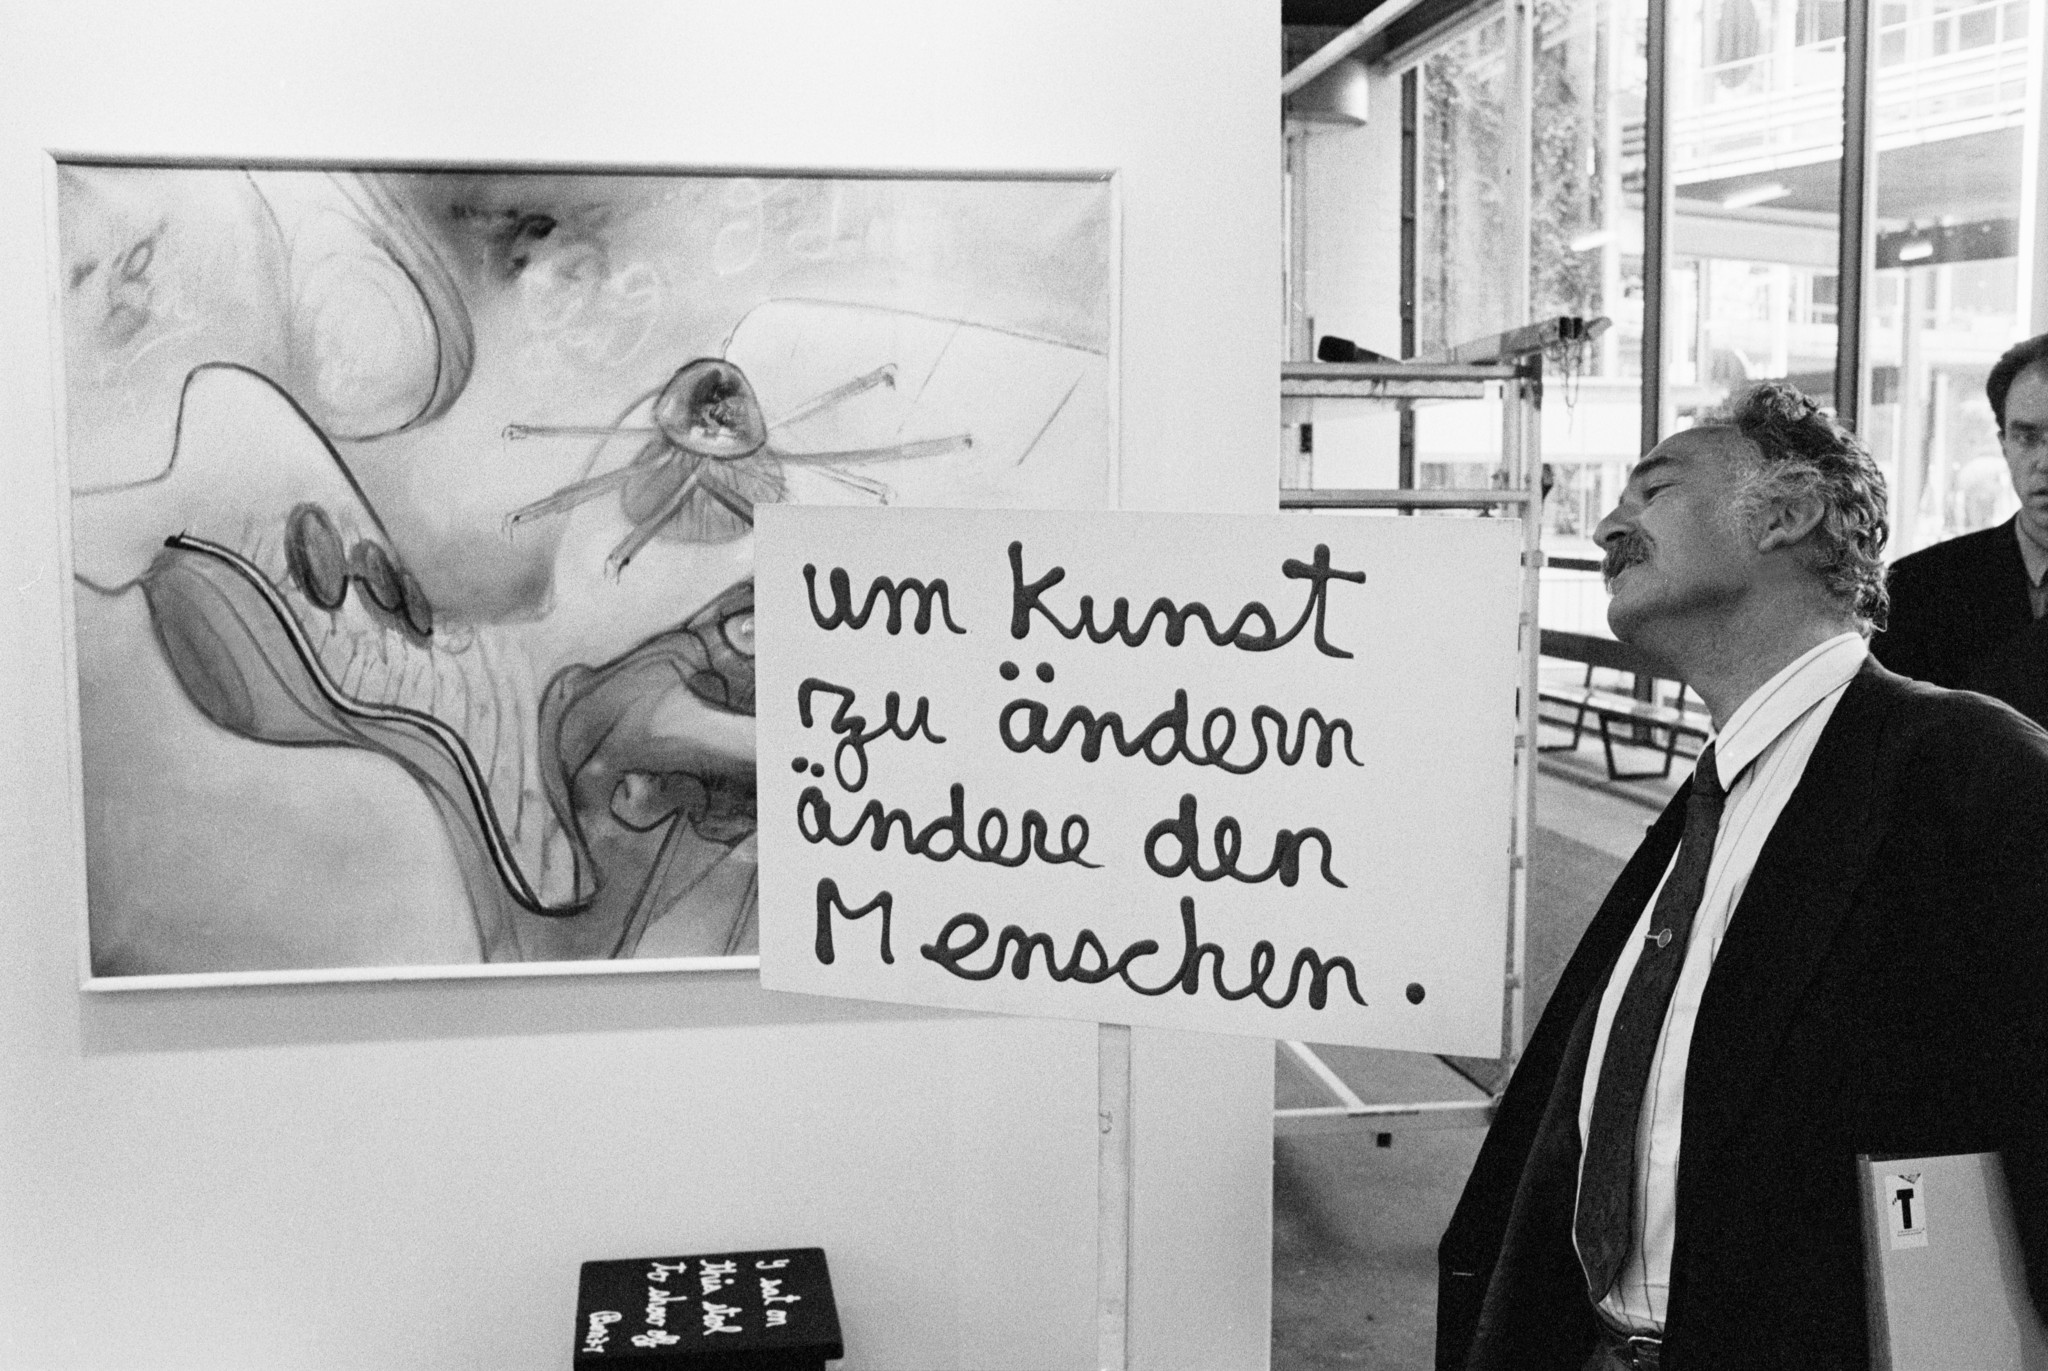 um Kunst
zu ändern
ändere den
Menschen.
y sat on
this stool
to show off
Ben 79
T